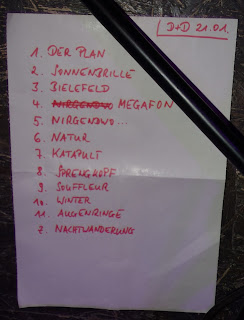 D+D 21.01.
1. DER PLAN
2. SONNENBRILLE
3. BIELEFELD
4. NIRGENDWO MEGAFON
5. NIRGENDWO...
6. NATUR
7. KATAPULT
8. SPRENGKOPF
9. SOUFFLEUR
10. WINTER
11. AUGENRINGE
Z. NACHTWANDERUNG